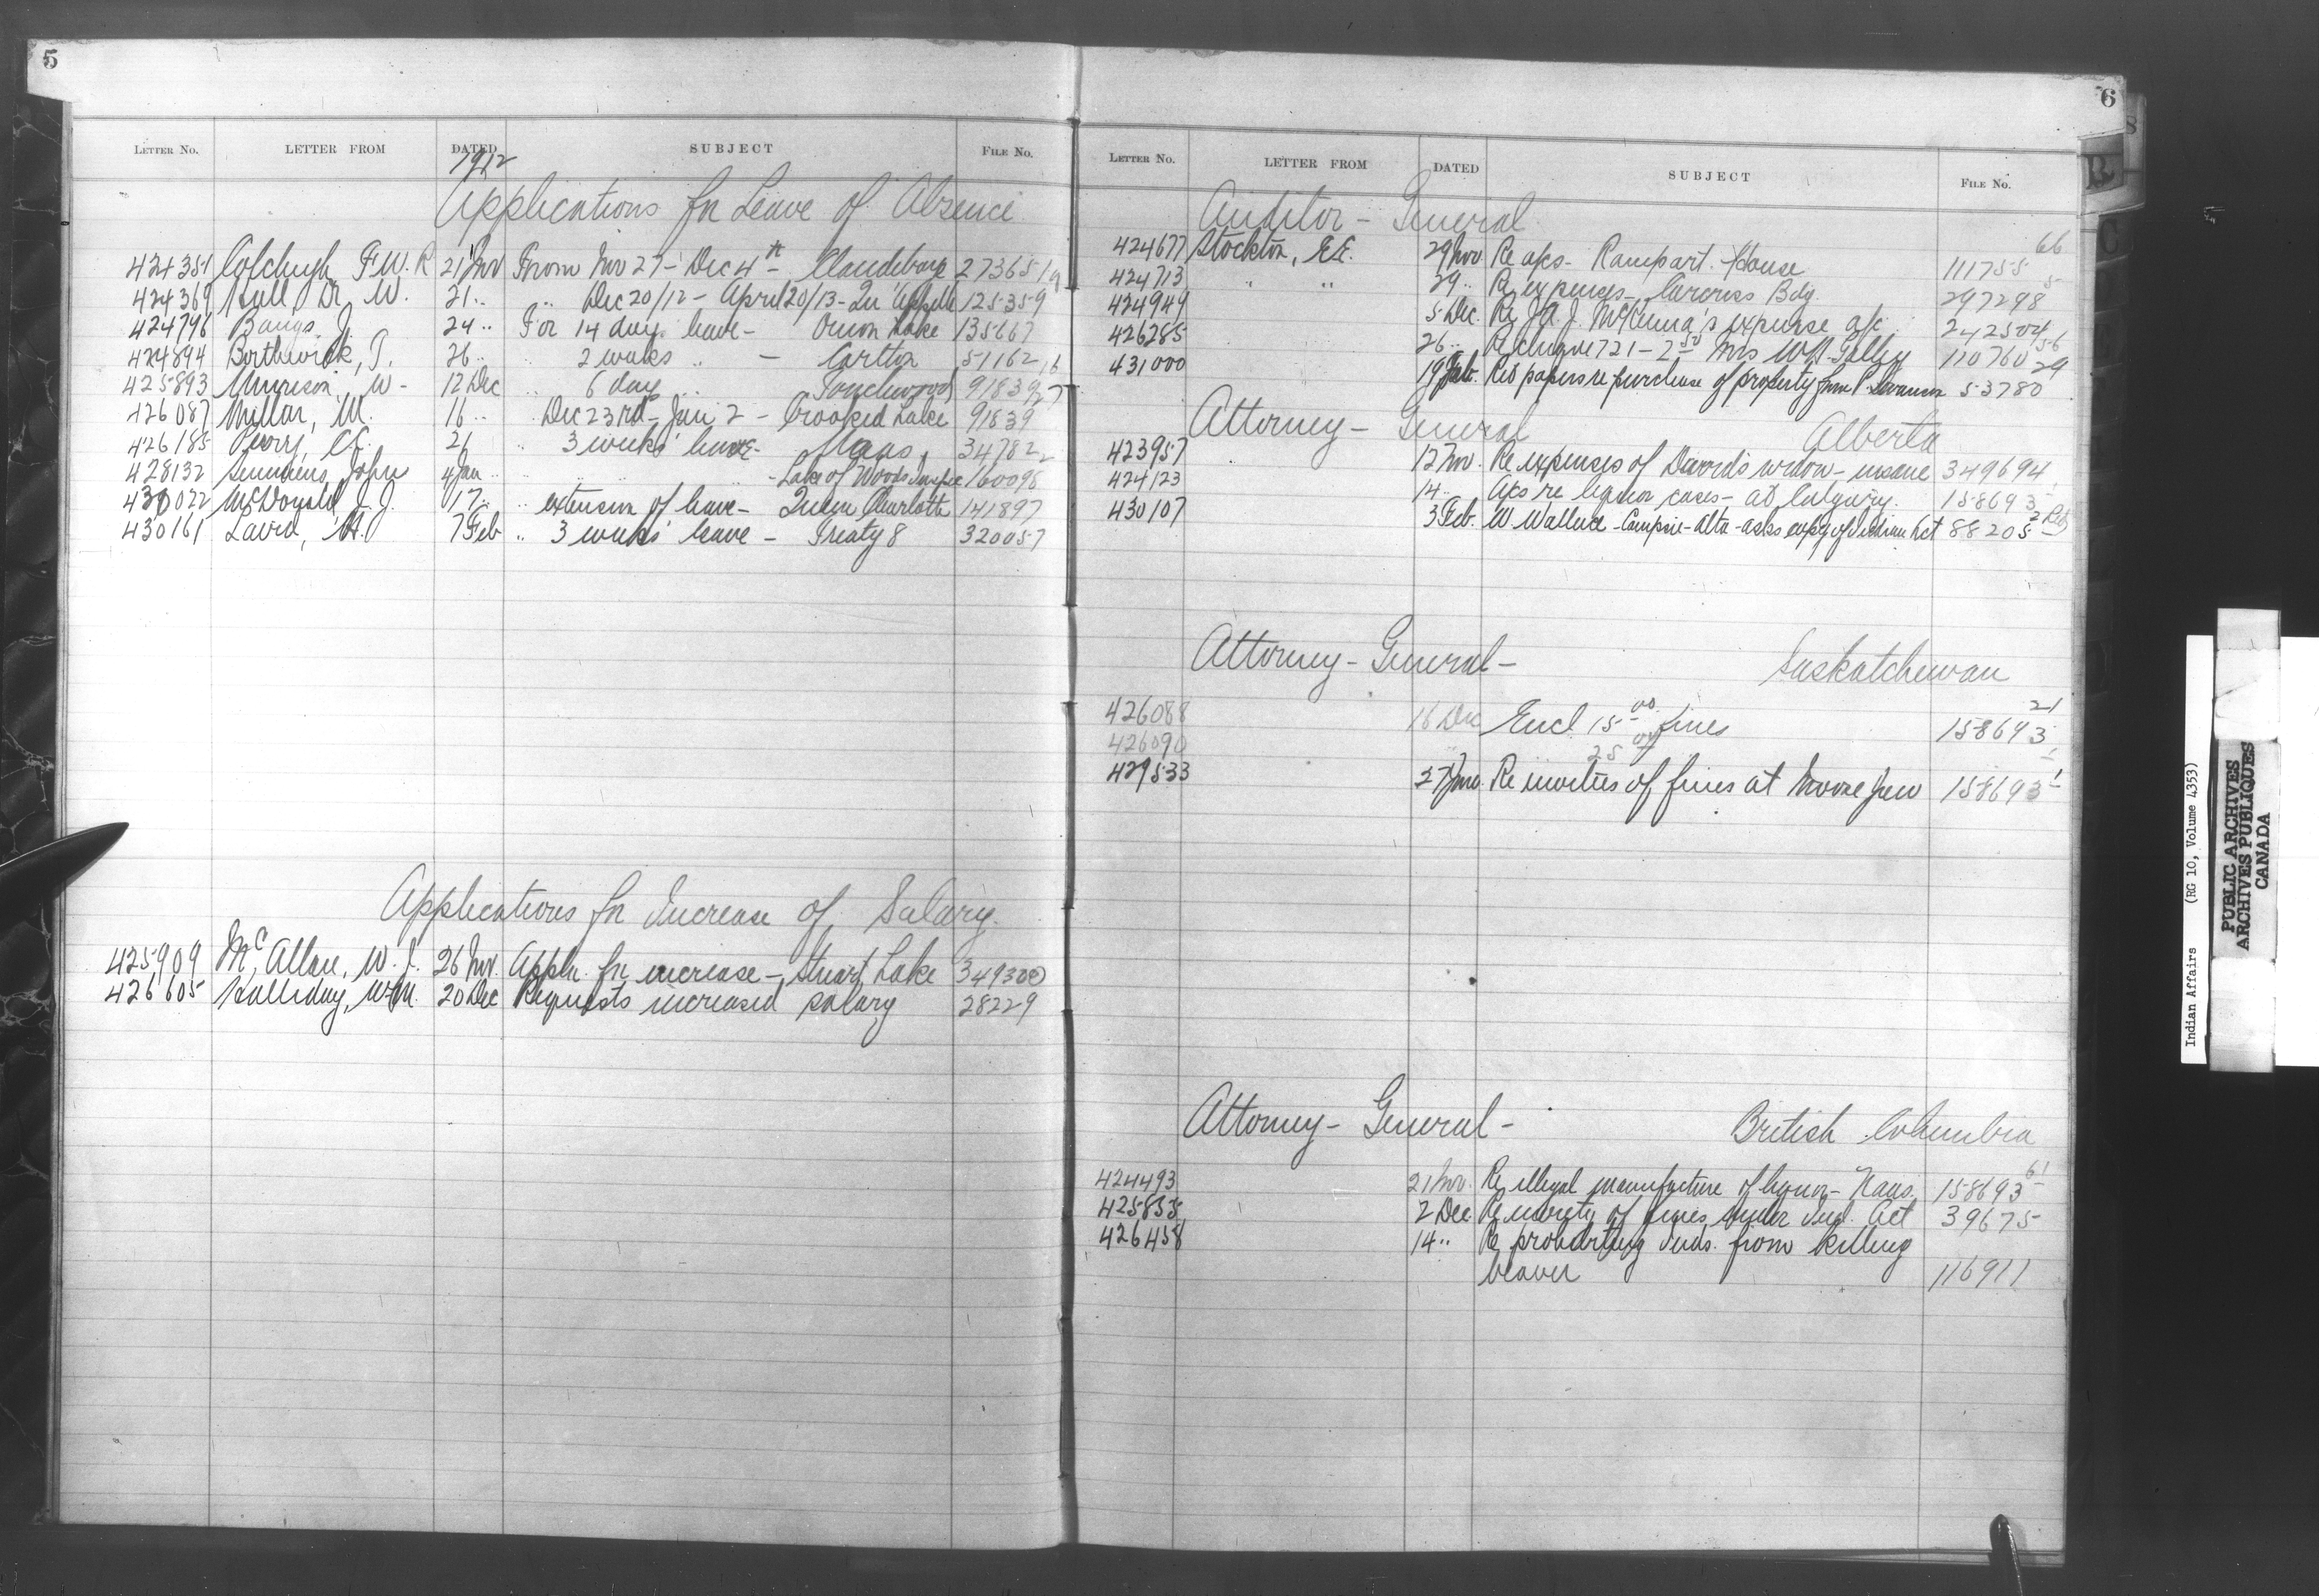 5
LETTER No. LETTER FROM DATED SUBJECT FILE No.
1912
Applications for Leave of Absence
424351 Colcleugh, F.W.R. 21 Nov From Nov 27 - Dec 4th - Clandeboye 27365 1/9
424369 Hall Dr W. 21 " " Dec 20/12 - April 20/13 - Qu'Appelle 125359
424796 Bangs, J. 24 " For 14 days leave - Onion Lake 135667
424894 Borthwick, T. 26 " " 2 weeks " - Carlton 51162 16
425893 Murison, W - 12 Dec " 6 days " Touchwood 91839 27
426087 Millar, M. 16 " " Dec 23rd - Jan 2 - Crooked Lake 91839
426185 Perry, C.C. 21 " 3 weeks' leave - Naas 34782 2
428132 Semmens, John 4 Jan " " " " - Lake of Woods Inspec 160098
430022 McDougald J.J. 17 " " extension of leave - Queen Charlotte 141897
430161 Laird, H. 7 Feb " 3 weeks' leave - Treaty 8 320057
Applications for Increase of Salary.
425909 McAllan, W. J. 26 Nov. Appln. for increase - Stuart Lake 349300
426605 Halliday, W.M. 20 Dec Requests increased salary 28229
6
LETTER No. LETTER FROM DATED SUBJECT FILE No.
Auditor - General
424677 Stockton, E.E. 29 Nov. Re a/cs - Rampart House 111755 66
424713 " " 29 " Re expenses - Carcross Bdg. 297298 5
424949 5 Dec. Re J.A.J. McKenna's expense a/c 242504
426285 26 " Re cheque 721 - 2.50 Mrs W.H. 110760 56
431000 19 Feb. Ret papers re purchase of property from P. Swanson 53780 29
Attorney - General Alberta
423957 12 Nov. Re expenses of David's widow - insane 349694
424123 14 " A/cs re liquor cases - at Calgary. 158693
430107 3 Feb. W. Wallace - Campsie - Alta - asks copy of Indian Act 88205
Attorney - General - Saskatchewan
426088 16 Dec Encl 15.00 fines 158693 21
426090 25.00
429533 27 Jan. Re moieties of fines at Moose Jaw 158693 1
Attorney - General - British Columbia
424493 21 Nov. Re illegal manufacture of liquor - Naas. 158693 61
425855 2 Dec. Re moiety of fines under Ind. Act 39675
426458 14 " Re prohibiting Inds. from killing
beaver 116911
Indian Affairs (RG 10, Volume 4353)
PUBLIC ARCHIVES
ARCHIVES PUBLIQUES
CANADA
R
C